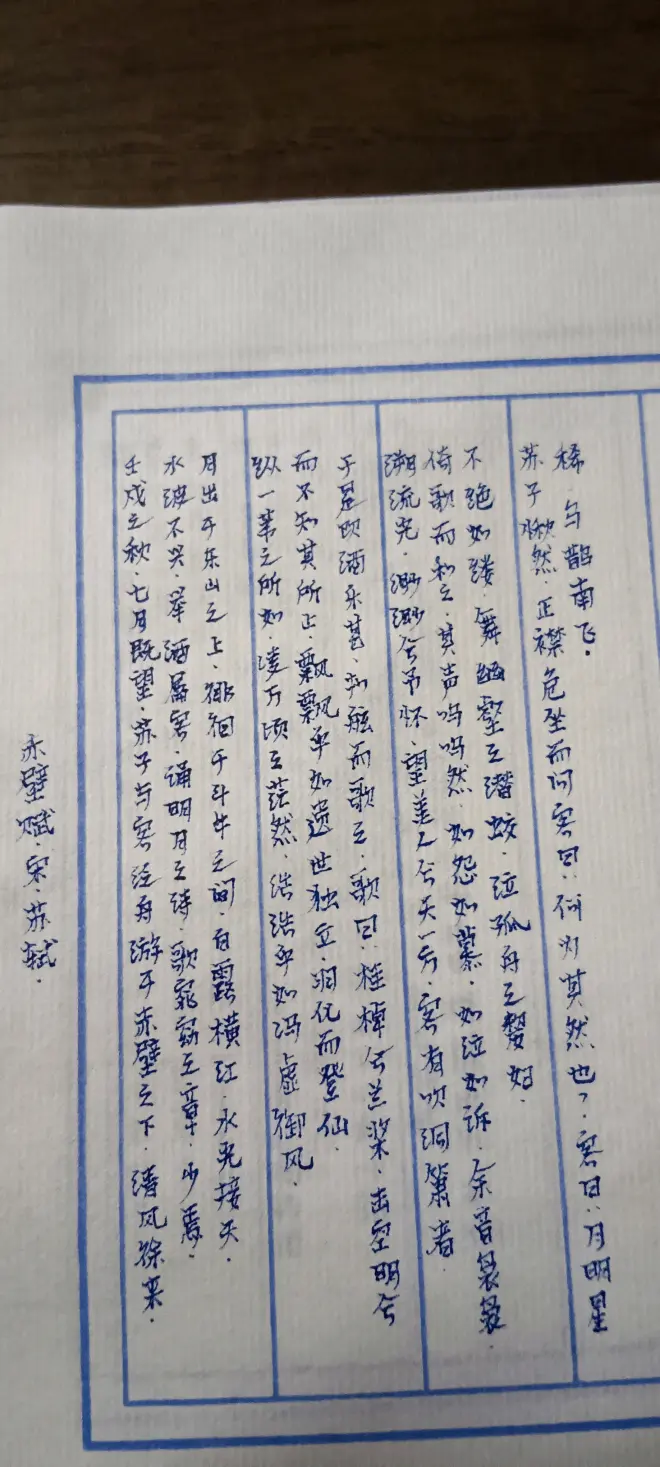 赤壁赋·宋·苏轼·
壬戌之秋·七月既望·苏子与客泛舟游于赤壁之下·清风徐来·
水波不兴·举酒属客·诵明月之诗·歌窕窈之章·少焉·
月出于东山之上·徘徊于斗牛之间·白露横江·水光接天·
纵一苇之所如·凌万顷之茫然·浩浩乎如冯虚御风·
而不知其所止·飘飘乎如遗世独立·羽化而登仙·
于是饮酒乐甚·扣舷而歌之·歌曰:桂棹兮兰桨·击空明兮
溯流光·渺渺兮予怀·望美人兮天一方·客有吹洞箫者·
倚歌而和之·其声呜呜然·如怨如慕·如泣如诉·余音袅袅·
不绝如缕·舞幽壑之潜蛟·泣孤舟之嫠妇·
苏子愀然·正襟危坐而问客曰:何为其然也?·客曰:月明星
稀·乌鹊南飞·